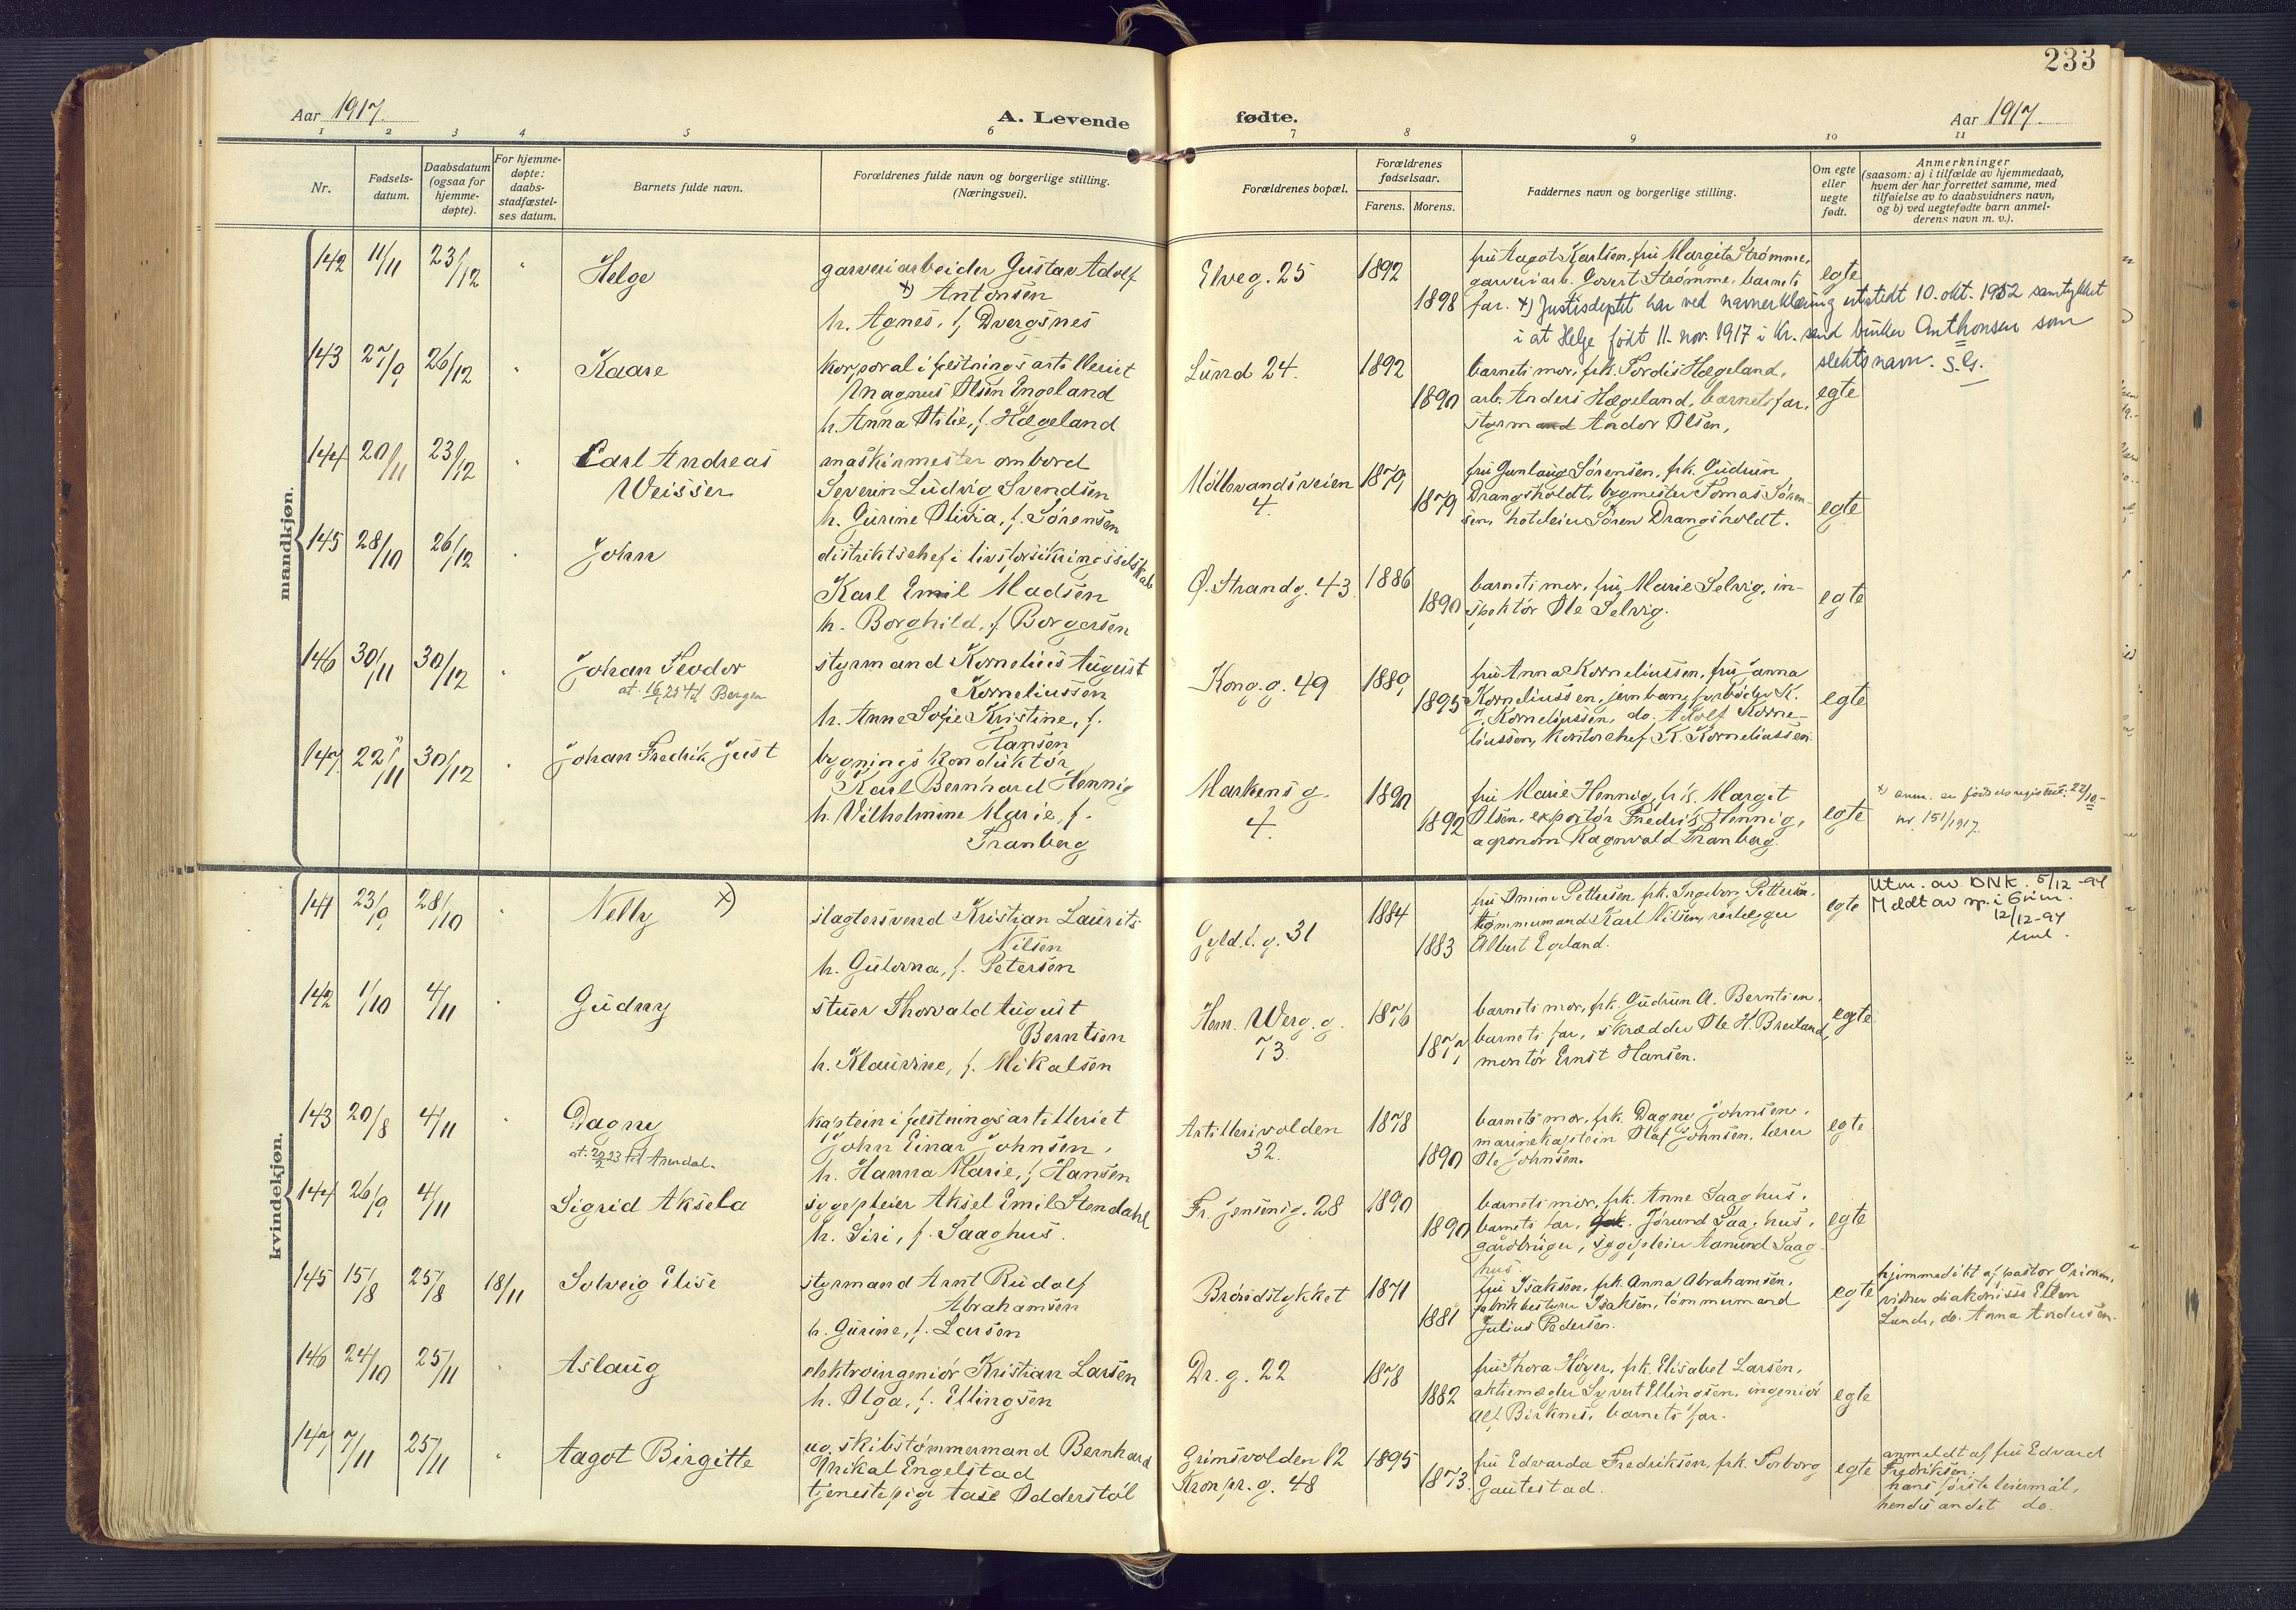 233
Aar 1917.
A. Levende
fødte.
Aar 1917.
1 2 3 4 5 6 7 8 9 10 11
Nr.
Fødsels-
datum.
Daabsdatum
(ogsaa for
hjemme-
døpte).
For hjemme-
døpte:
daabs-
stadfæstel-
ses datum.
Barnets fulde navn.
Forældrenes fulde navn og borgerlige stilling.
(Næringsvei).
Forældrenes bopæl.
Forældrenes
fødselsaar.
Farens. Morens.
Faddernes navn og borgerlige stilling.
Om egte
eller
uegte
født.
Anmerkninger
(saasom: a) i tilfælde av hjemmedaab,
hvem der har forrettet samme, med
tilføielse av to daabsvidners navn,
og b) ved uegtefødte barn anmel-
derens navn m. v.).
mandkjøn.
142 11/11 23/12 " Helge
garveriarbeider Gustav Adolf
x) Antonsen
h. Agnes, f. Dvergsnes
Elveg. 25 1892 1898
fru Aagot Karlsen, fru Margit Strømme,
garveriarb. Govert Strømme, barnets
far.
egte
x) Justisdeptet har ved navnerklæring utstedt 10. okt. 1952 samtykket
i at Helge født 11. nov. 1917 i Kr.sand bruker Anthonsen som
slektsnavn. S.G.
143 27/9 26/12 " Kaare
korporal i festningsartilleriet
Magnus Olsen Engeland
h. Anna Otilie, f. Hægeland
Lund 24. 1892 1890
barnets mor, frk. Tordis Hægeland,
arb. Anders Hægeland, barnets far,
styrmand Andor Olsen,
egte
144 20/11 23/12 " Carl Andreas
Weisser
maskinmester ombord
Severin Ludvig Svendsen
h. Gurine Olivia, f. Sørensen
Møllevandsveien
4. 1879 1879
fru Gunlaug Sørensen, frk. Gudrun
Drangsholdt, bygmester Tomas Søren-
sen, hoteleier Søren Drangsholdt.
egte
145 28/10 26/12 " John
distriktschef i livsforsikringsselskab
Karl Emil Madsen
h. Borghild, f. Borgersen
Ø. Strandg. 43 1886 1890
barnets mor, fru Marie Selvig, in-
spektør Ole Selvig.
egte
146 30/11 30/12 " Johan Teodor
at. 16/ 25 til Bergen
styrmand Kornelius August
Korneliussen
h. Anne Sofie Kristine, f.
Hansen
Kong.g. 49 1889 1895
fru Anna Korneliussen, fru Janna
Korneliussen, K.
Korneliussen, do. Adolf Korne-
liussen, kontorchef K. Korneliussen.
egte
147 22/11 30/12 " Johan Fredrik Just
bygningskonduktør
Karl Bernhard Hennig
h. Vilhelmine Marie, f.
Tranberg
Markensg.
4. 1890 1892
fru Marie Hennig, frk. Margit
Olsen, exportør Fredrik Hennig,
agronom Ragnvald Tranberg
egte
x) anm. se fødselsregistret 22/10-
nr. 151/1917.
kvindekjøn.
141 23/9 28/10 " Nelly x)
slagtersvend Kristian Laurits
Nilsen
h. Gulorna, f. Petersen
Gyld.l.g. 31 1884 1883
fru Omine Pettersen, frk. Ingeborg Pettersen,
tømmermand Karl Nilsen, rørlægger
Albert Egeland.
egte
Utm. av DNK. 5/12-94
Meldt av sp. i Grim.
12/12-94
142 1/10 4/11 " Gudny
stuer Thorvald August
Berntsen
h. Klaurine, f. Mikalsen
Henr. Werg. g.
73. 1876 1877
barnets mor, frk. Gudrun A. Berntsen,
barnets far, skrædder Ole H. Breiland,
montør Ernst Hansen.
egte
143 20/8 4/11 " Dagny
at. 20/2 23 til Arendal.
kaptein i festningsartilleriet
John Einar Johnsen,
h. Hanna Marie, f. Hansen
Artillerivolden
32. 1878 1890
barnets mor, frk. Dagny Johnsen,
marinekaptein Olaf Johnsen, lærer
Ole Johnsen.
egte
144 26/9 4/11 Sigrid Aksela
sygepleier Aksel Emil Stendahl
h. Siri, f. Saaghus.
Fr. Jensensg. 28 1890 1890
barnets mor, frk. Anne Saaghus,
barnets far, Jørund Saaghus,
gårdbruger, sygepleier Aamund Saag-
hus.
egte
145 15/8 25/8 18/11 Solveig Elise
styrmand Arnt Rudolf
Abrahamsen
h. Gurine, f. Larsen
Brøndstykket 1871 1881
fru Isaksen, frk. Anna Abrahamsen,
fabrikbestyrer Isaksen, tømmermand
Julius Pedersen.
egte
hjemmedøbt af pastor
vidner diakonisse Ellen
Lund, do. Anna Andersen.
146 24/10 25/11 " Aslaug
elektroingeniør Kristian Larsen
h. Olga, f. Ellingsen
Dr. g. 22 1878 1882
fru Thora Høyer, frk. Elisabet Larsen,
aktiemægler Syvert Ellingsen, ingeniør
Alf Birknes, barnets far.
egte
147 7/11 25/11 " Aagot Birgitte
ug. skibstømmermand Bernhard
Mikal Engelstad
tjenestepige Aase Odderstøl
Grimsvolden 12
Kronpr. g. 48 1895 1873.
fru Edvarda Fredriksen, frk. Torborg
Gautestad.
egte
anmeldt af fru Edvard
Fredriksen.
hans første leiermål,
hendes andet do.